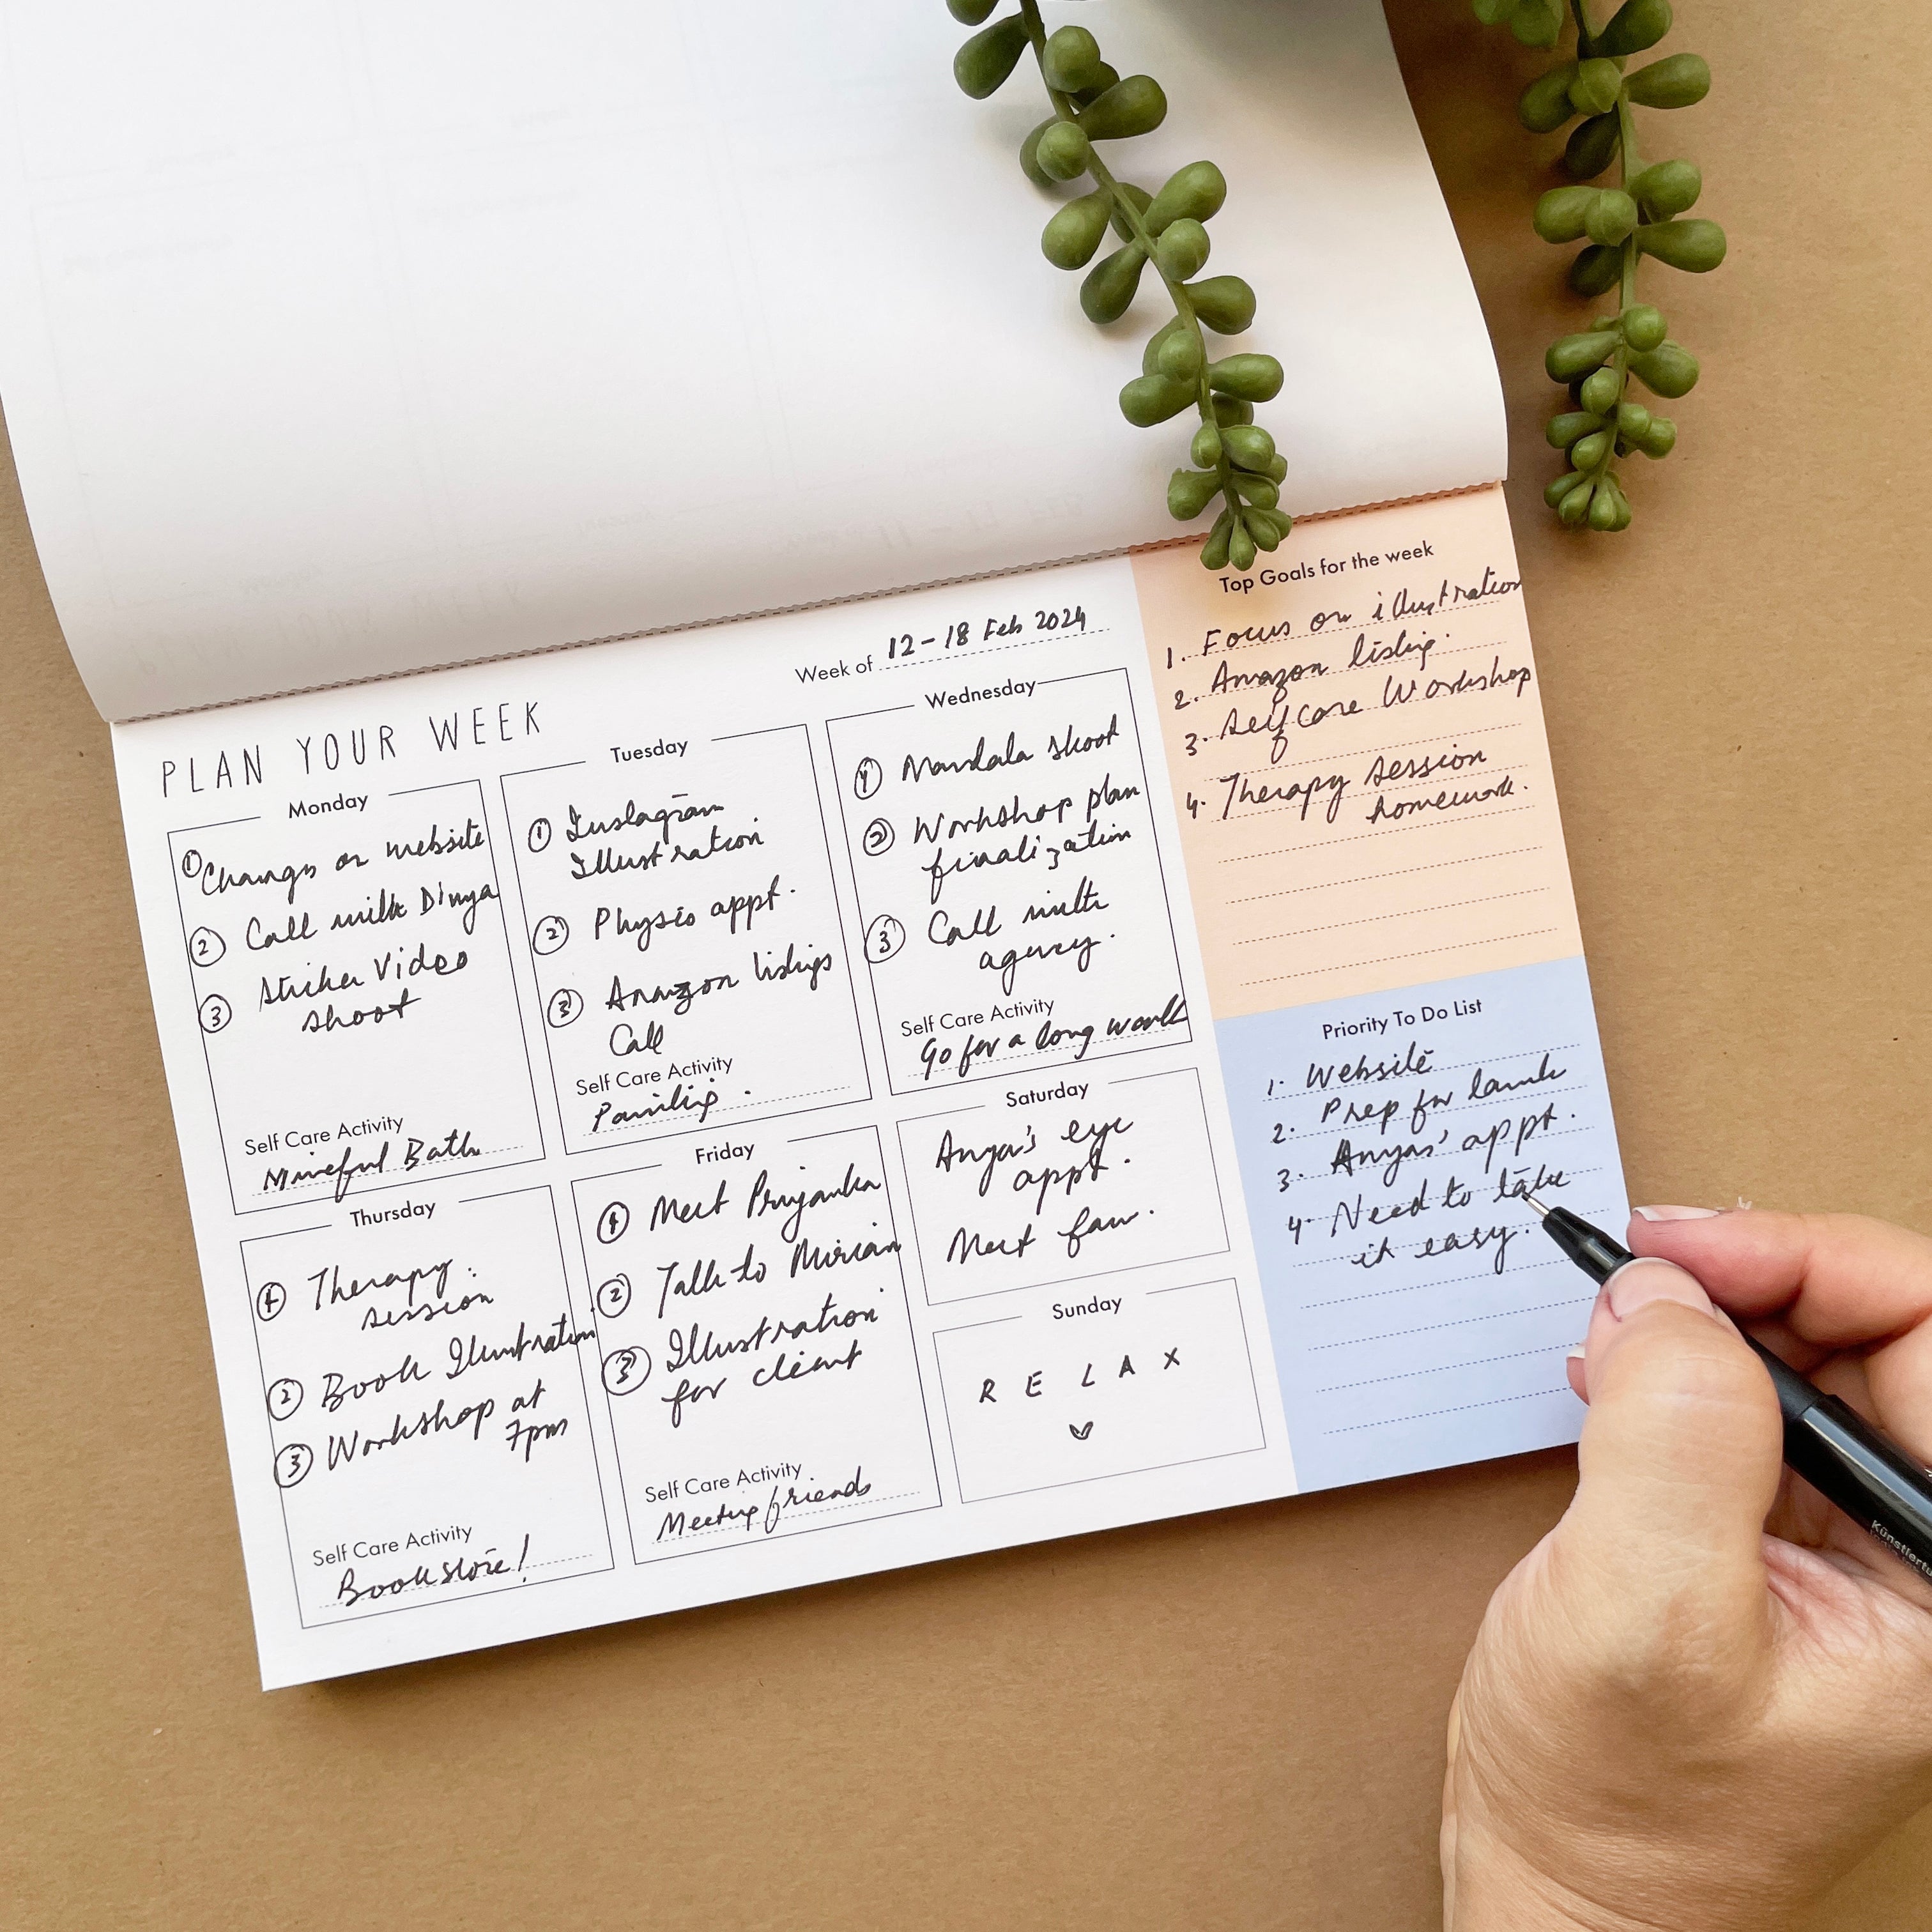 PLAN YOUR WEEK
Week of 12 - 18 Feb 2024
Monday
① Changes on website
② Call with Divya
③ Sticker Video
shoot
Self Care Activity
Mindful Bath
Tuesday
① Instagram
Illustration
② Physio appt.
③ Amazon listings
Call
Self Care Activity
Painting.
Wednesday
① Mandala shoot
② Workshop plan
finalization
③ Call with
agency.
Self Care Activity
Go for a long walk
Thursday
① Therapy
session
② Book Illustration
③ Workshop at
7pm
Self Care Activity
Book store!
Friday
① Meet Priyanka
② Talk to Miriam
③ Illustration
for client
Self Care Activity
Meeting friends
Saturday
Anya's eye
appt.
Meet fam.
Sunday
R E L A X
Top Goals for the week
1. Focus on illustration
2. Amazon listing.
3. Self Care Workshop
4. Therapy session
homework.
Priority To Do List
1. Website
2. Prep for launch
3. Anyas' appt.
4. Need to take
it easy.